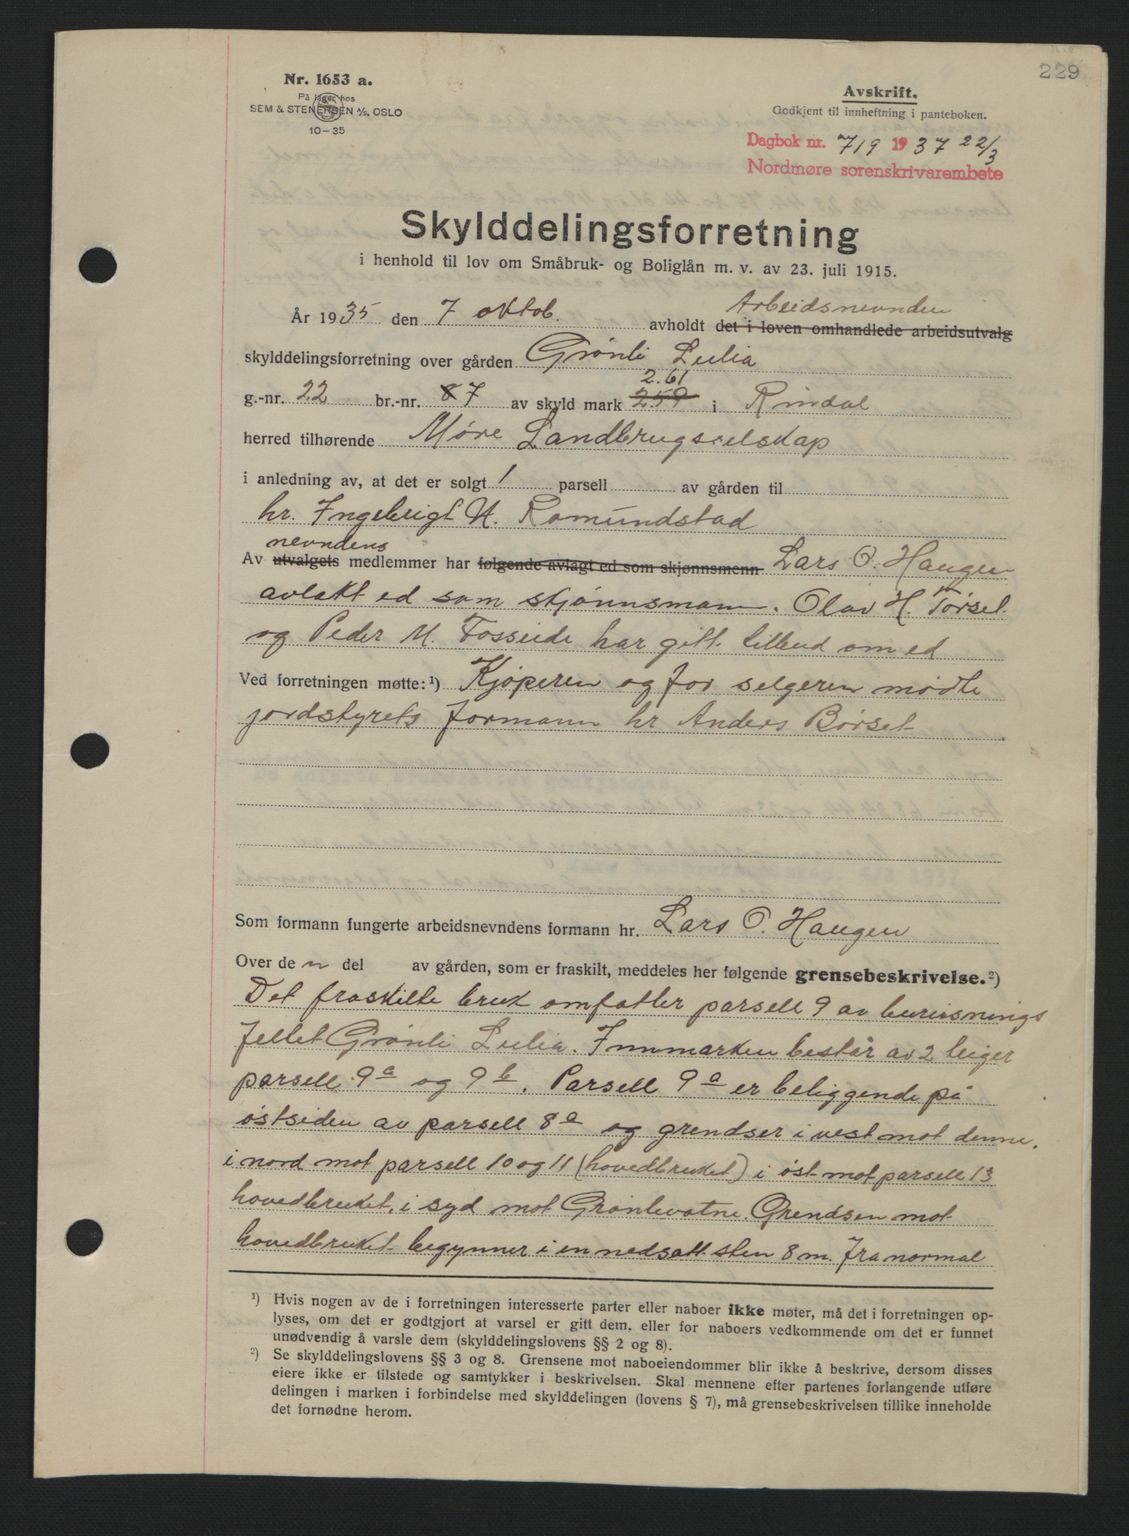 229
Nr. 1653 a.
På lager hos
SEM & STENERSEN A/S, OSLO
10-35
Avskrift.
Godkjent til innheftning i panteboken.
Dagbok nr. 719 1937 22/3
Nordmøre sorenskrivarembete
Skylddelingsforretning
i henhold til lov om Småbruk- og Boliglån m. v. av 23. juli 1915.
Arbeidsnevnden
År 1935 den 7 oktob. avholdt det i loven omhandlede arbeidsutvalg
skylddelingsforretning over gården Grönli Lulia
2.61
g.-nr. 22 br.-nr. 8 7 av skyld mark 259 i Rindal
herred tilhørende Møre Landbrugsselskap
i anledning av, at det er solgt 1 parsell av gården til
hr. Ingebrigt U. Romundstad
nevndens
Av utvalgets medlemmer har følgende avlagt ed som skjønnsmenn Lars O. Haugen
avlakt ed som skjönnsmann. Olav H. Törset
og Peder M. Fosseide har gitt tilbud om ed
Ved forretningen møtte: ¹) Kjøperen og for selgeren mødte
jordstyrets formann hr Anders Börset
Som formann fungerte arbeidsnevndens formann hr. Lars O. Haugen
Over den del av gården, som er fraskilt, meddeles her følgende grensebeskrivelse.²)
Det fraskilte bruk omfatter parsell 9 av bureisnings
fellet Grönli Lulia. Innmarken består av 2 teiger
parsell 9a og 9b. Parsell 9a er beliggende på
østsiden av parsell 8a og grendser i vest mot denne,
i nord mot parsell 10 og 11 (hovedbruket) i øst mot parsell 13
hovedbruket, i syd mot Grönlivatne. Grendsen mot
hovedbruket begynner i en nedsatt sten 8 m. fra normal
¹) Hvis nogen av de i forretningen interesserte parter eller naboer ikke møter, må det i forretningen op-
lyses, om det er godtgjort at varsel er gitt dem, eller for naboers vedkommende om det er funnet
unødvendig å varsle dem (skylddelingslovens §§ 2 og 8).
²) Se skylddelingslovens §§ 3 og 8. Grensene mot naboeiendommer blir ikke å beskrive, dersom disses
eiere ikke er tilstede og samtykker i beskrivelsen. Skal mennene efter partenes forlangende utføre
delingen i marken i forbindelse med skylddelingen (lovens § 7), må grensebeskrivelsen tillike inneholde
det fornødne herom.